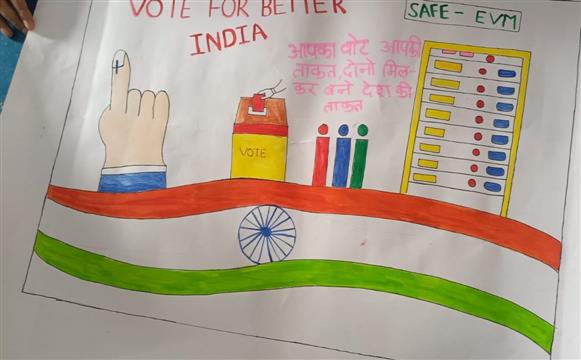 VOTE FOR BETTER
INDIA
SAFE - EVM
आपका वोट आपकी
ताकत, दोनो मिल-
कर बने देश की
ताकत
VOTE